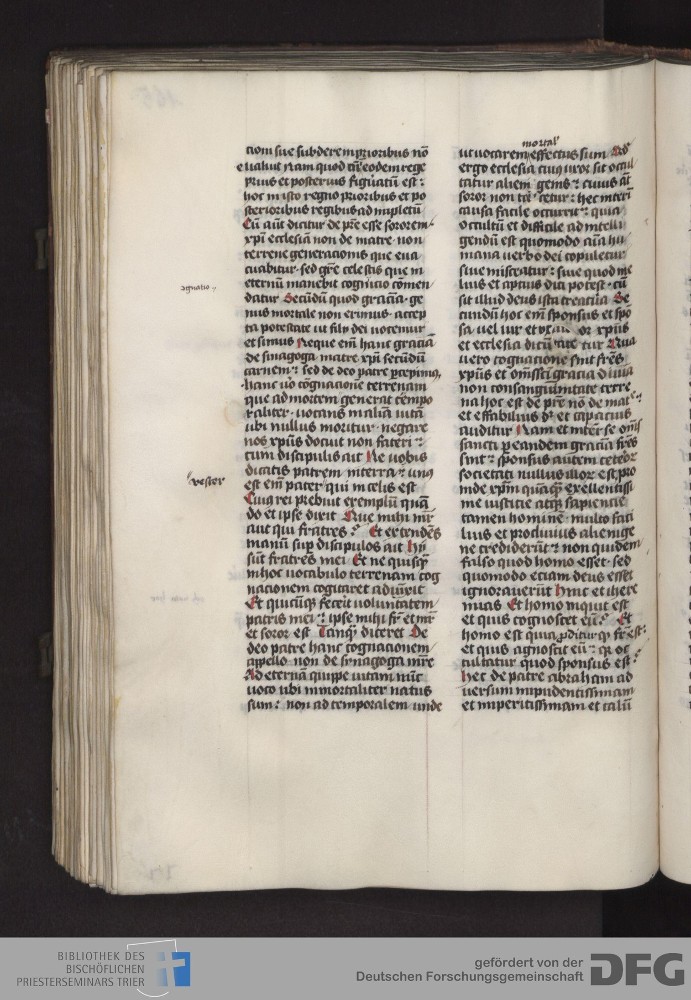 cioni sue subderem prioribus nō
evaluit Nam quod tūc eodem rege
prius et posterius figuratū est :
hoc in isto regno prioribus et po
sterioribus regibus ad impletū
Cū aūt dicitur de pr̄e esse sororem
xp̄i ecclesiā non de matre · non
terrene generacionis que eua
cuabitur · sed gr̄e celestis que in
eternū manebit cognitio cōmen
datur Secūdū quod graciā · ge
nus mortale non erimus · accep
ta potestate ut filij dei vocemur
et simus Neque em̄ hanc graciā
de sinagoga matre xp̄i secūdū
carnem : sed de deo patre p̄cepimus
hanc v̄o cognacionē terrenam
que ad mortem generat tēmpo
raliter · vocans in aliā vitā
ubi nullus moritur · negare
nos xp̄us docuit non fateri :
cum discipulis ait Ne vobis
dicatis patrem in terra : unus
est em̄ pater qui in celis est
vester
Cuius rei prebuit exemplū quā
do et ipse dixit Que mihi mr̄
aut qui fratres : Et extendēs
manū sup̄ discipulos ait hij
sūt fratres mei Et ne quisq̄
in hoc vocabulo terrenam cog
nacionem cogitaret adiūxit
Et quicūq̄ fecerit voluntatem
patris mei : ipse mihi fr̄ et mr̄
et soror est Tanq̄ diceret De
deo patre hanc cognacionem
appello · non de sinagoga mr̄e
Ad eternā quippe vitam nūc
voco ubi inmortaliter natus
sum : non ad temporalem unde
mortal
ut vocarem effectus sum
ergo ecclesia cuius uxor sit occul
tatur aliem̄ genis : cuius aūt
soror non tacetur : hec in teri
causa facile occurrit : quia
occultū et difficile ad intelli
gendū est quomodo aīa hu
mana verbo dei copuletur
siue misceatur : siue quod me
lius et aptius dici potest · cū
sit illud deus ista creatura Se
cundū hoc em̄ sponsus et spo
sa vel vir et uxor xp̄us
et ecclesia dicūtur Qua
vero cognacione sint fr̄es
xp̄us et om̄s sc̄i gracia diuina
non consanguinitate terre
na hoc est de pr̄e nō de mat
et effabilius dr̄ et capacius
auditur Nam et inter se om̄s
sancti p̄ eandem graciā fr̄es
sint : sponsus autem ceteror
societati nullus illor est pro
inde xp̄m quāq̄ exellentissi
me iusticie atq̄ sapiencie
tamen hominē · multo faci
lius et procliuius alienige
ne crediderūt : non quidem
falso quod homo esset · sed
quomodo etiam deus esset
ignorauerūt hinc et ihere
mias Et homo inquit est
et quis cognoscet eū : Et
homo est quia p̄ditur q̄ fr̄ est :
et quis agnoscit eū : q̄ oc
cultatur quod sponsus est :
hec de patre abraham ad
versum inpudentissimam
et inperitissimam et calū
BIBLIOTHEK DES
BISCHÖFLICHEN
PRIESTERSEMINARS TRIER
gefördert von der
Deutschen Forschungsgemeinschaft
DFG